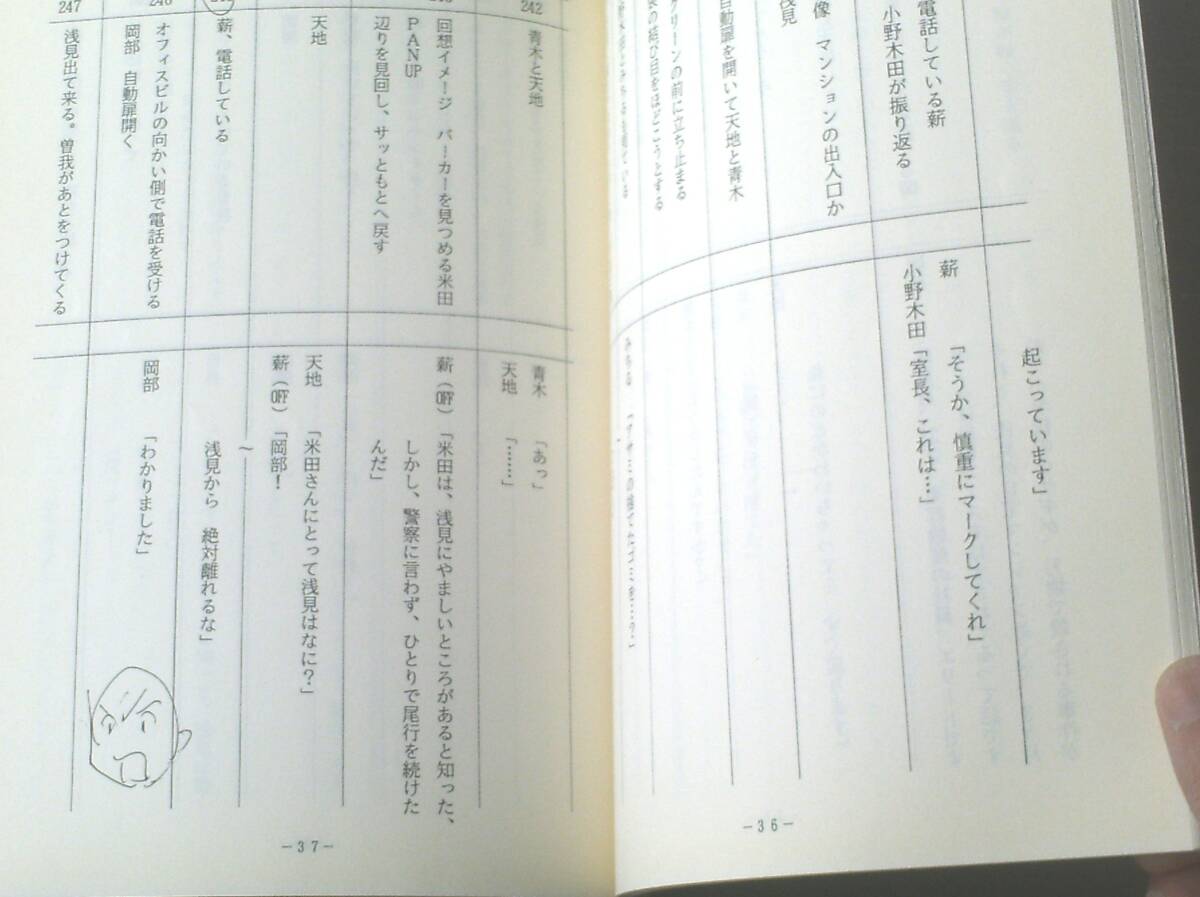 起こっています」
電話している薪
薪　「そうか、慎重にマークしてくれ」
小野木田が振り返る
小野木田「室長、これは…」
像　マンションの出入口か
浅見
自動扉を開いて天地と青木
クリーンの前に立ち止まる
の結び目をほどこうとする
－３６－
242
青木と天地
青木　「あっ」
天地　「……」
回想イメージ　パーカーを見つめる米田
ＰＡＮ UP
辺りを見回し、サッともとへ戻す
薪（OFF）「米田は、浅見にやましいところがあると知った、
しかし、警察に言わず、ひとりで尾行を続けた
んだ」
天地
天地　「米田さんにとって浅見はなに？」
薪（OFF）「岡部！
薪、電話している
～
浅見から　絶対離れるな」
オフィスビルの向かい側で電話を受ける
岡部　自動扉開く
岡部　「わかりました」
247
浅見出て来る。曽我があとをつけてくる
－３７－